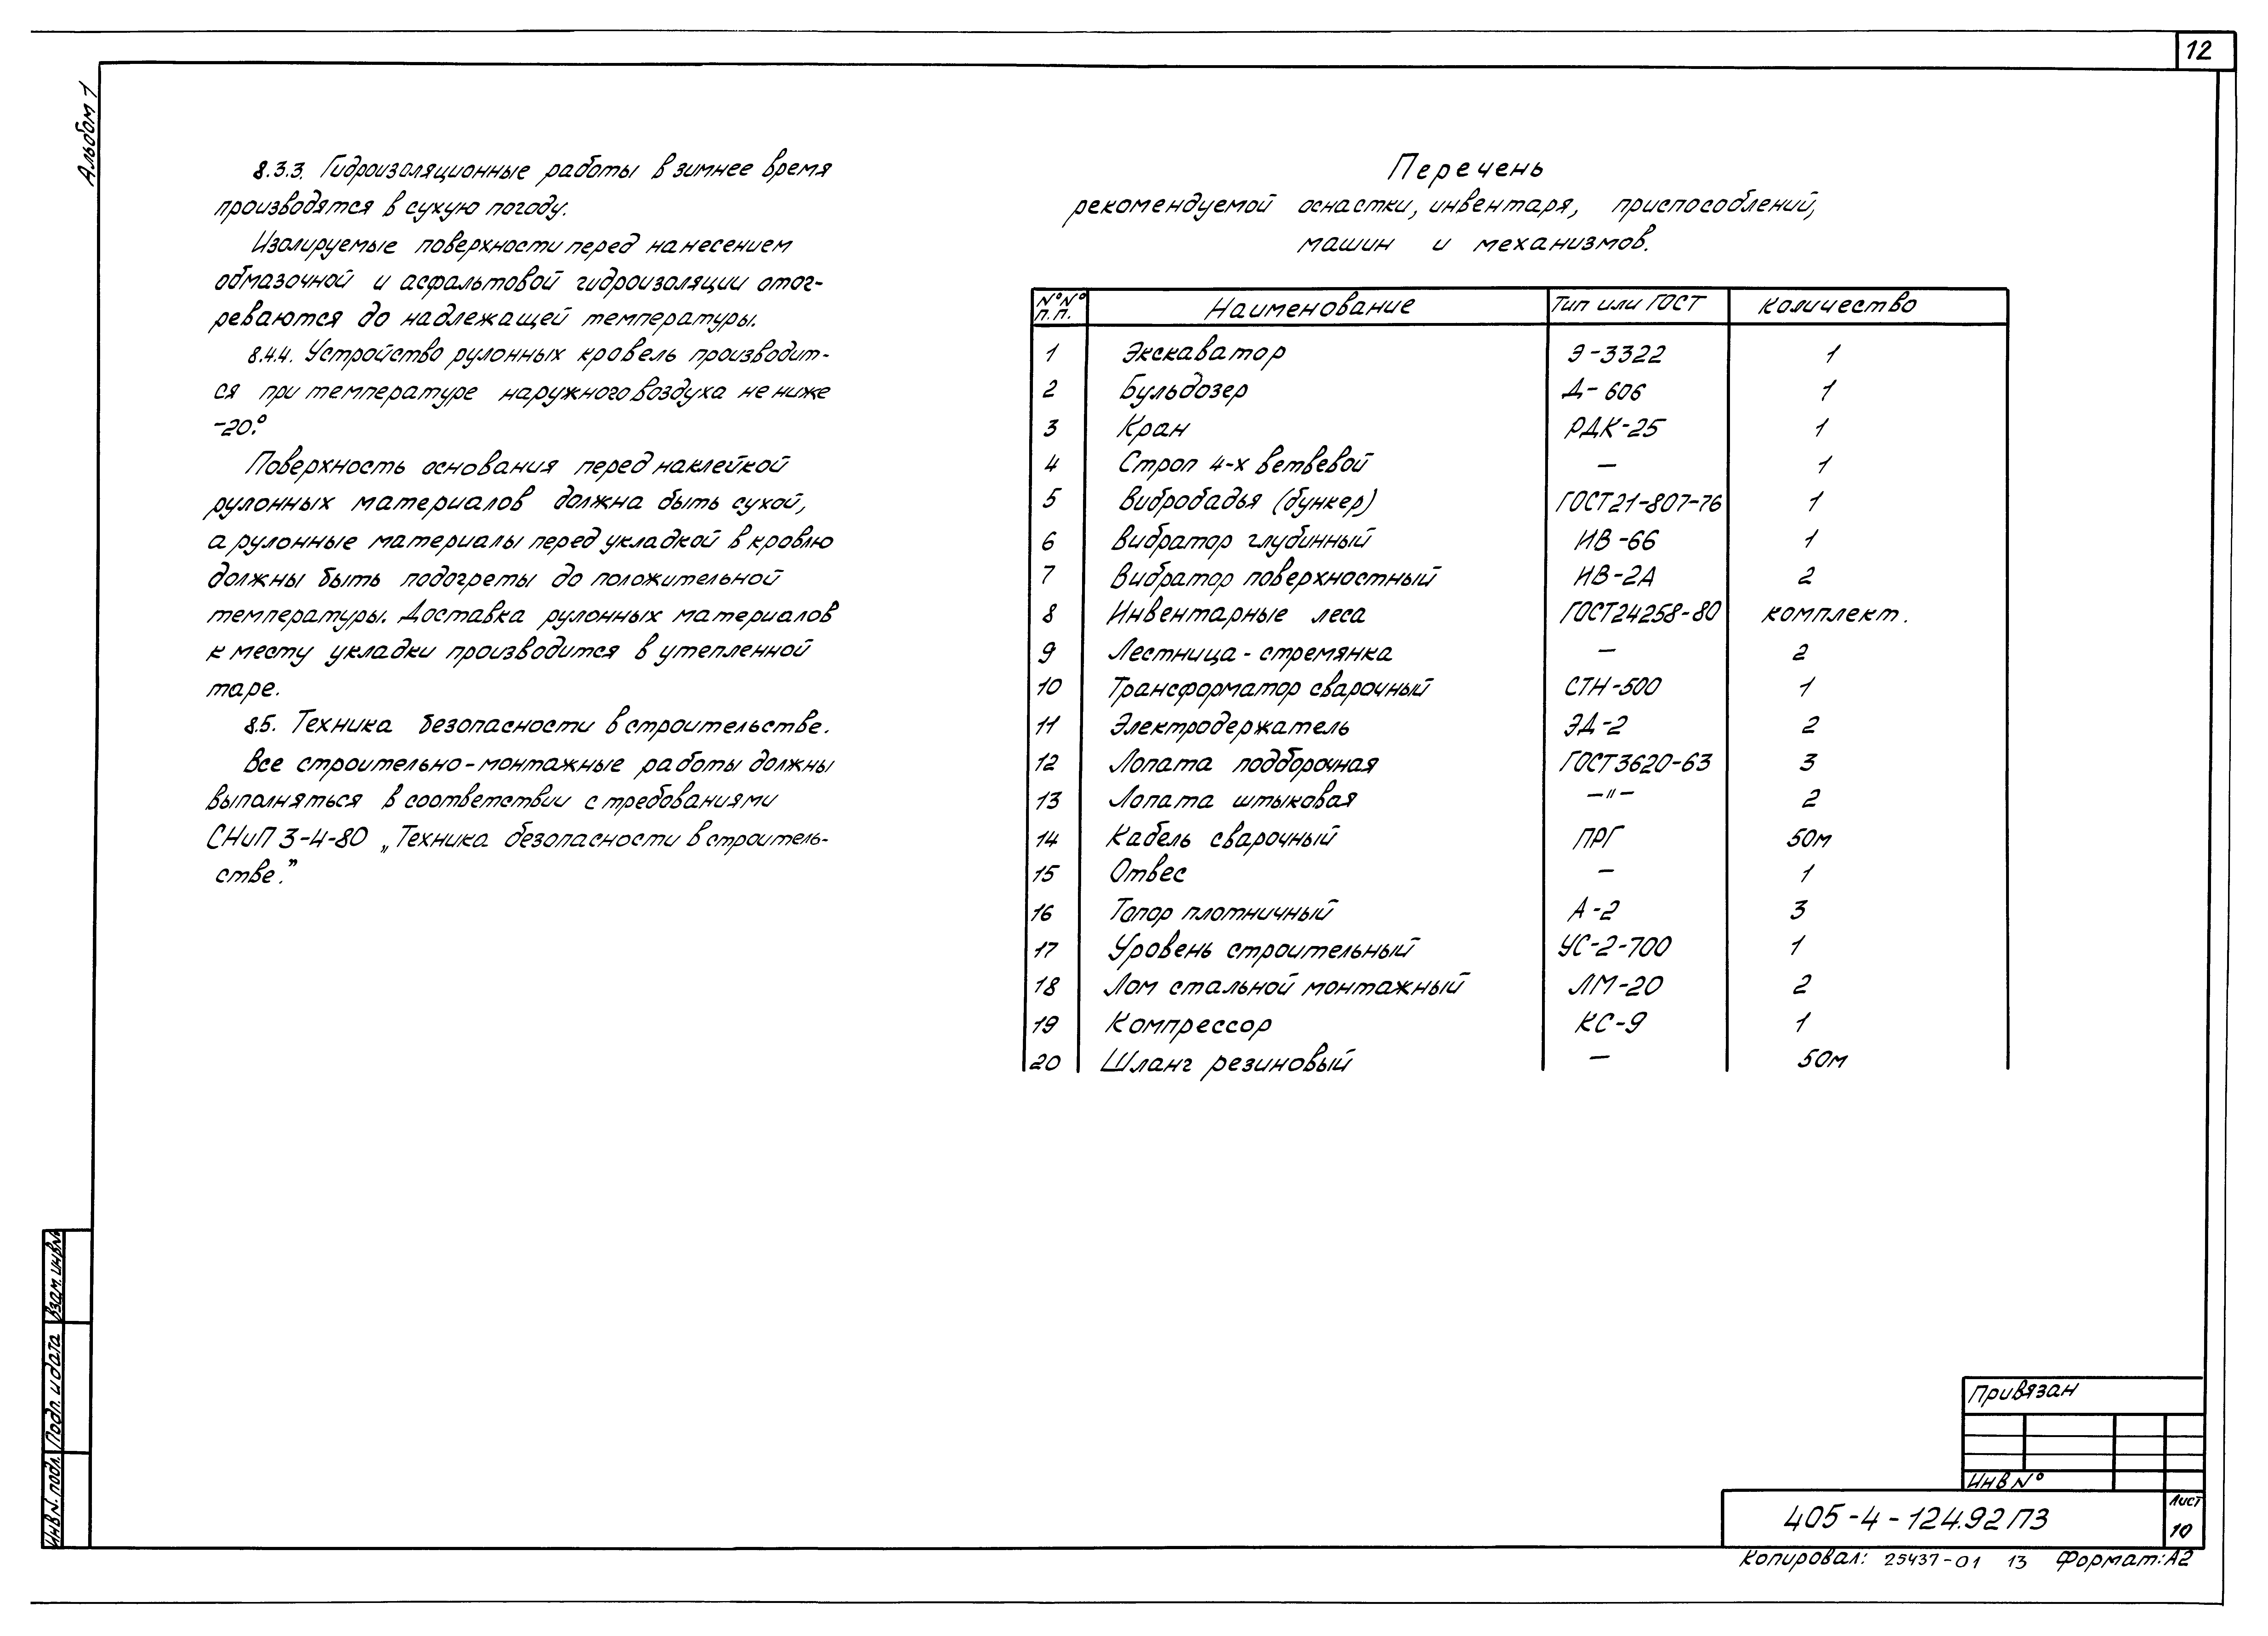 12
Альбом 1
8.3.3. Гидроизоляционные работы в зимнее время
производятся в сухую погоду.
Изолируемые поверхности перед нанесением
обмазочной и асфальтовой гидроизоляции отог-
реваются до надлежащей температуры.
8.4.4. Устройство рулонных кровель производит-
ся при температуре наружного воздуха не ниже
-20.°
Поверхность основания перед наклейкой
рулонных материалов должна быть сухой,
а рулонные материалы перед укладкой в кровлю
должны быть подогреты до положительной
температуры. Доставка рулонных материалов
к месту укладки производится в утепленной
таре.
8.5. Техника безопасности в строительстве.
Все строительно-монтажные работы должны
выполняться в соответствии с требованиями
СНиП 3-4-80 „Техника безопасности в строитель-
стве."
Перечень
рекомендуемой оснастки, инвентаря, приспособлений,
машин и механизмов.
N°N° п.п. Наименование Тип или ГОСТ Количество
1 Экскаватор Э-3322 1
2 Бульдозер Д-606 1
3 Кран РДК-25 1
4 Строп 4-х ветвевой — 1
5 Вибробадья (бункер) ГОСТ21-807-76 1
6 Вибратор глубинный ИВ-66 1
7 Вибратор поверхностный ИВ-2А 2
8 Инвентарные леса ГОСТ24258-80 комплект.
9 Лестница-стремянка — 2
10 Трансформатор сварочный СТН-500 1
11 Электродержатель ЭД-2 2
12 Лопата подборочная ГОСТ3620-63 3
13 Лопата штыковая —"— 2
14 Кабель сварочный ПРГ 50м
15 Отвес — 1
16 Топор плотничный А-2 3
17 Уровень строительный УС-2-700 1
18 Лом стальной монтажный ЛМ-20 2
19 Компрессор КС-9 1
20 Шланг резиновый — 50м
Взам. инв.N
Подп. и дата
Инв.N. подл.
Привязан
Инв N°
405-4-124.92 ПЗ
Лист
10
Копировал: 25437-01 13 Формат: А2